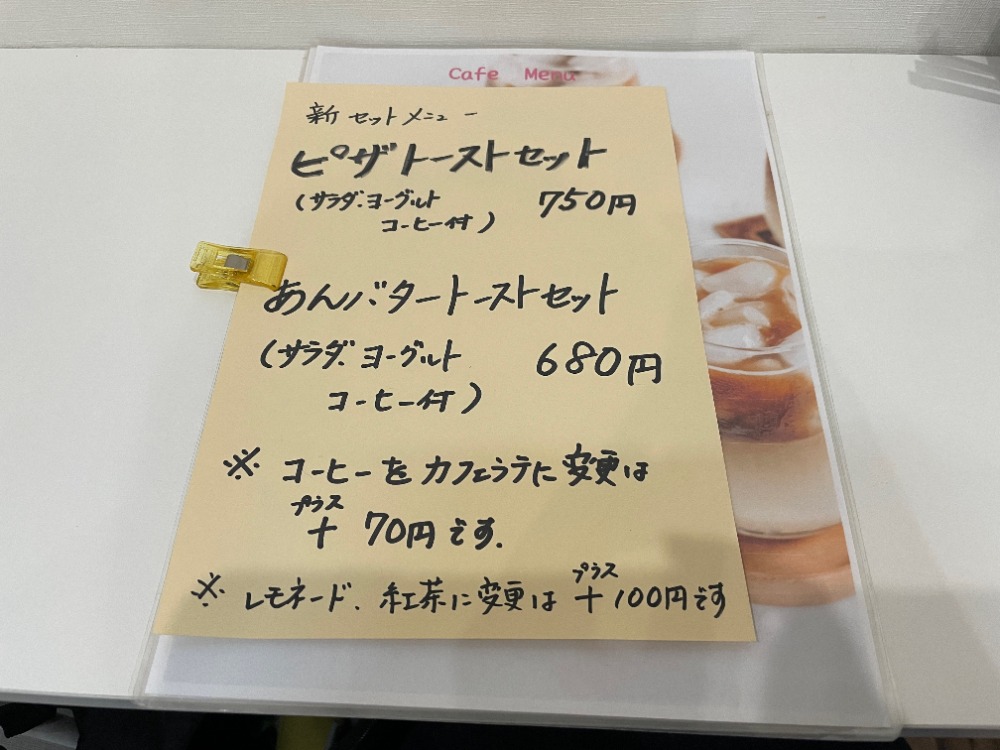 Cafe Menu
新 セットメニュー
ピザトーストセット
(サラダ、ヨーグルト 750円
コーヒー付)
あんバタートーストセット
(サラダ、ヨーグルト 680円
コーヒー付)
※ コーヒーをカフェラテに変更は
プラス
+ 70円です.
プラス
※ レモネード、紅茶に変更は + 100円です